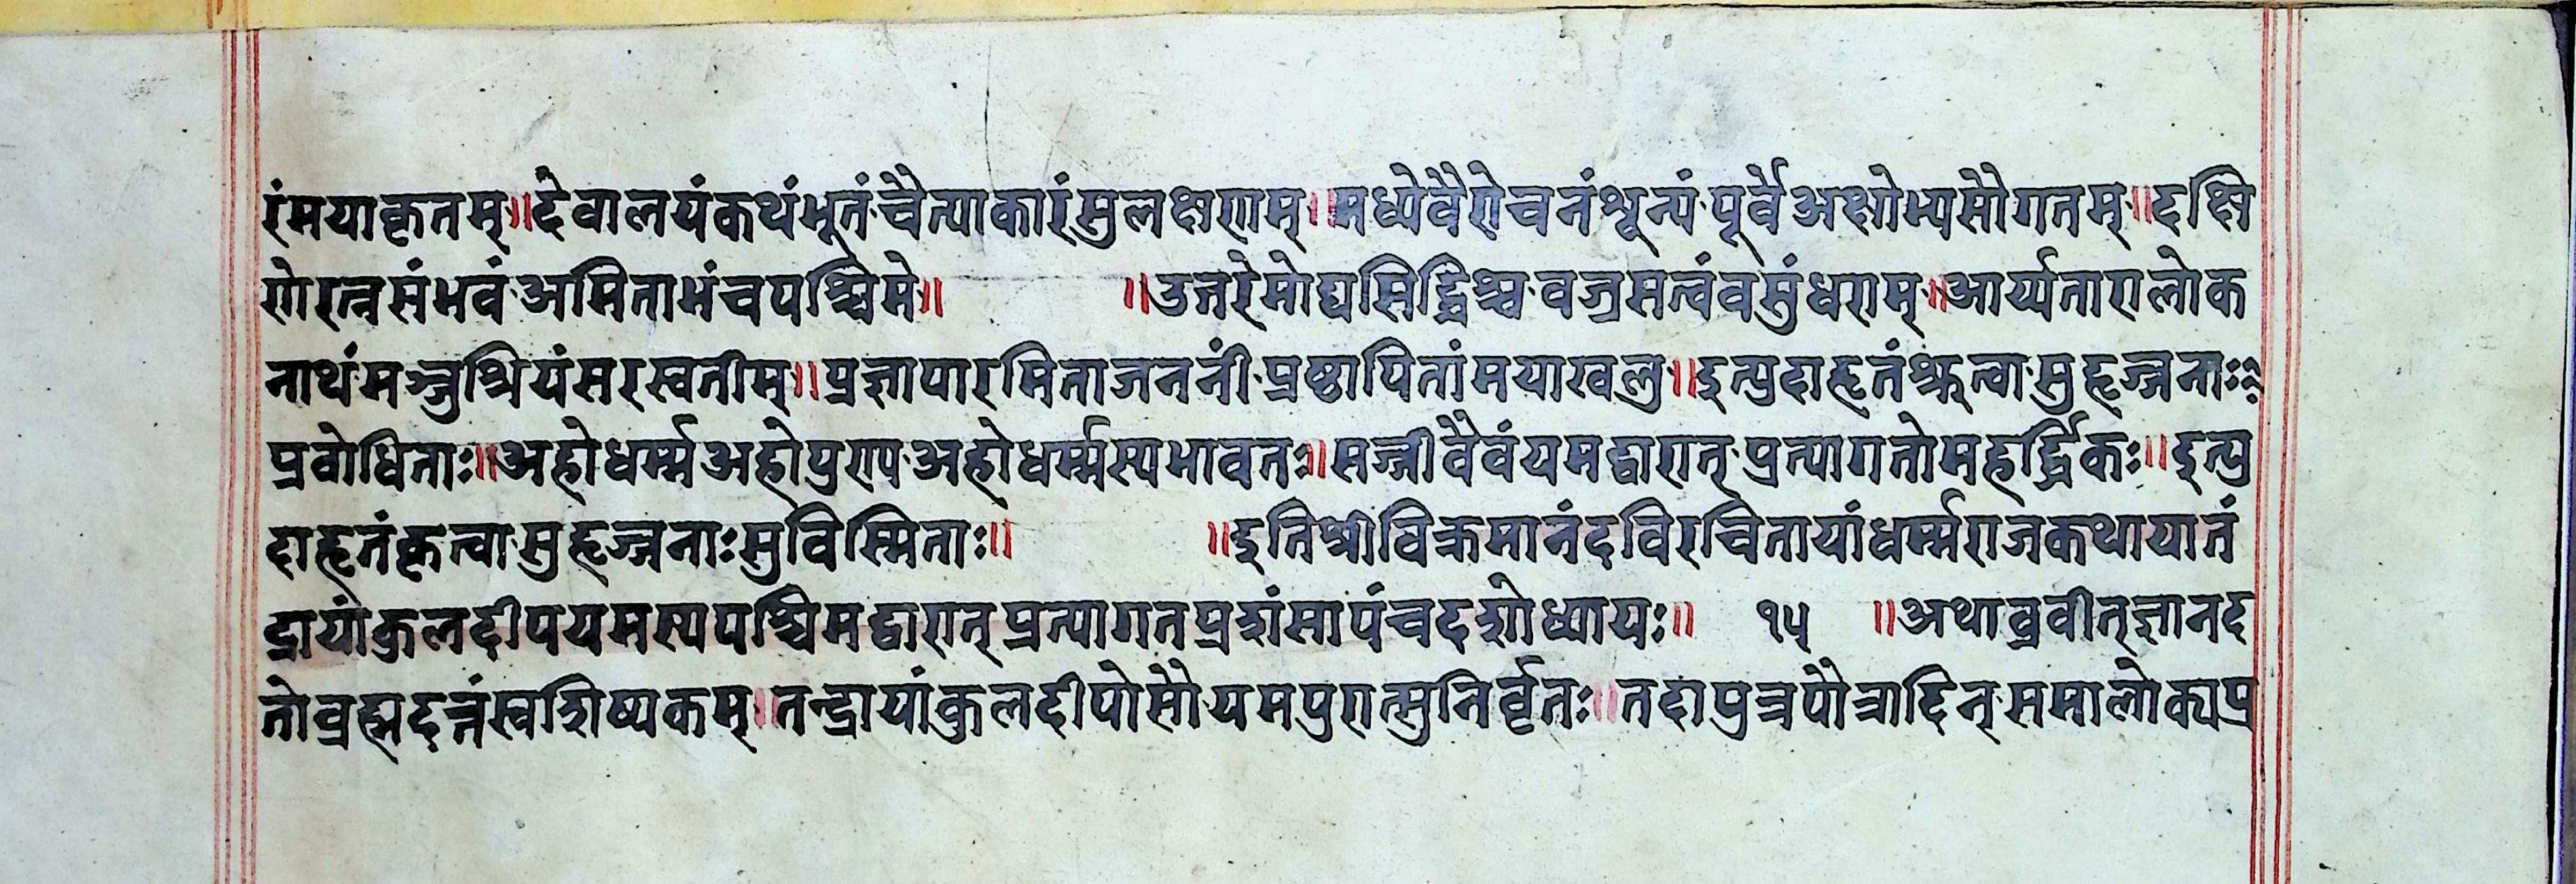 रंमयाकृतम्॥देवालयंकथंभूतं·चैत्याकारंसुलक्षणम्॥मध्येवैरोचनंशून्यं·पूर्वेअक्षोभ्यसौगतम्॥दक्षि
णेरत्नसंभवं·अमिताभंचपश्चिमे॥ ॥उत्तरेमोघसिद्धिश्च·वज्रसत्वंवसुंधराम्॥आर्य्यतारालोक
नाथं·मञ्जुश्रियंसरस्वतीम्॥प्रज्ञापारमिताजननीं·प्रष्ठापितांमयाखलु॥इत्युदाहृतंश्रुत्वा·सुहृज्जनाः
प्रबोधिताः॥अहोधर्म्मअहोपुण्य·अहोधर्म्मस्यभावतः॥सज्जीवैवंयमद्वारात्·प्रत्यागतोमहर्द्धिकः॥इत्यु
दाहृतंकृत्वा·सुहृज्जनाःसुविस्मिताः॥ ॥इतिश्रीविक्रमानंदविरचितायांधर्म्मराजकथायातं
द्रायांकुलदीपयमस्यपश्चिमद्वारात्प्रत्यागतप्रशंसापंचदशोध्यायः॥ १५ ॥अथाब्रवीत्ज्ञानद
तोब्रह्मदत्तंस्वशिष्यकम्॥तन्द्रायांकुलदीपोसौयमपुरात्सुनिर्वृतः॥तदापुत्रपौत्रादिन्·समालोक्यप्र